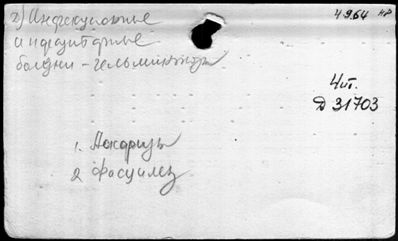 2) Инфекционные
и паразитарные
болезни - гельминтозы
4964 нр
Чит.
Д 31703
1. Аскаризы
2. Фасциолез